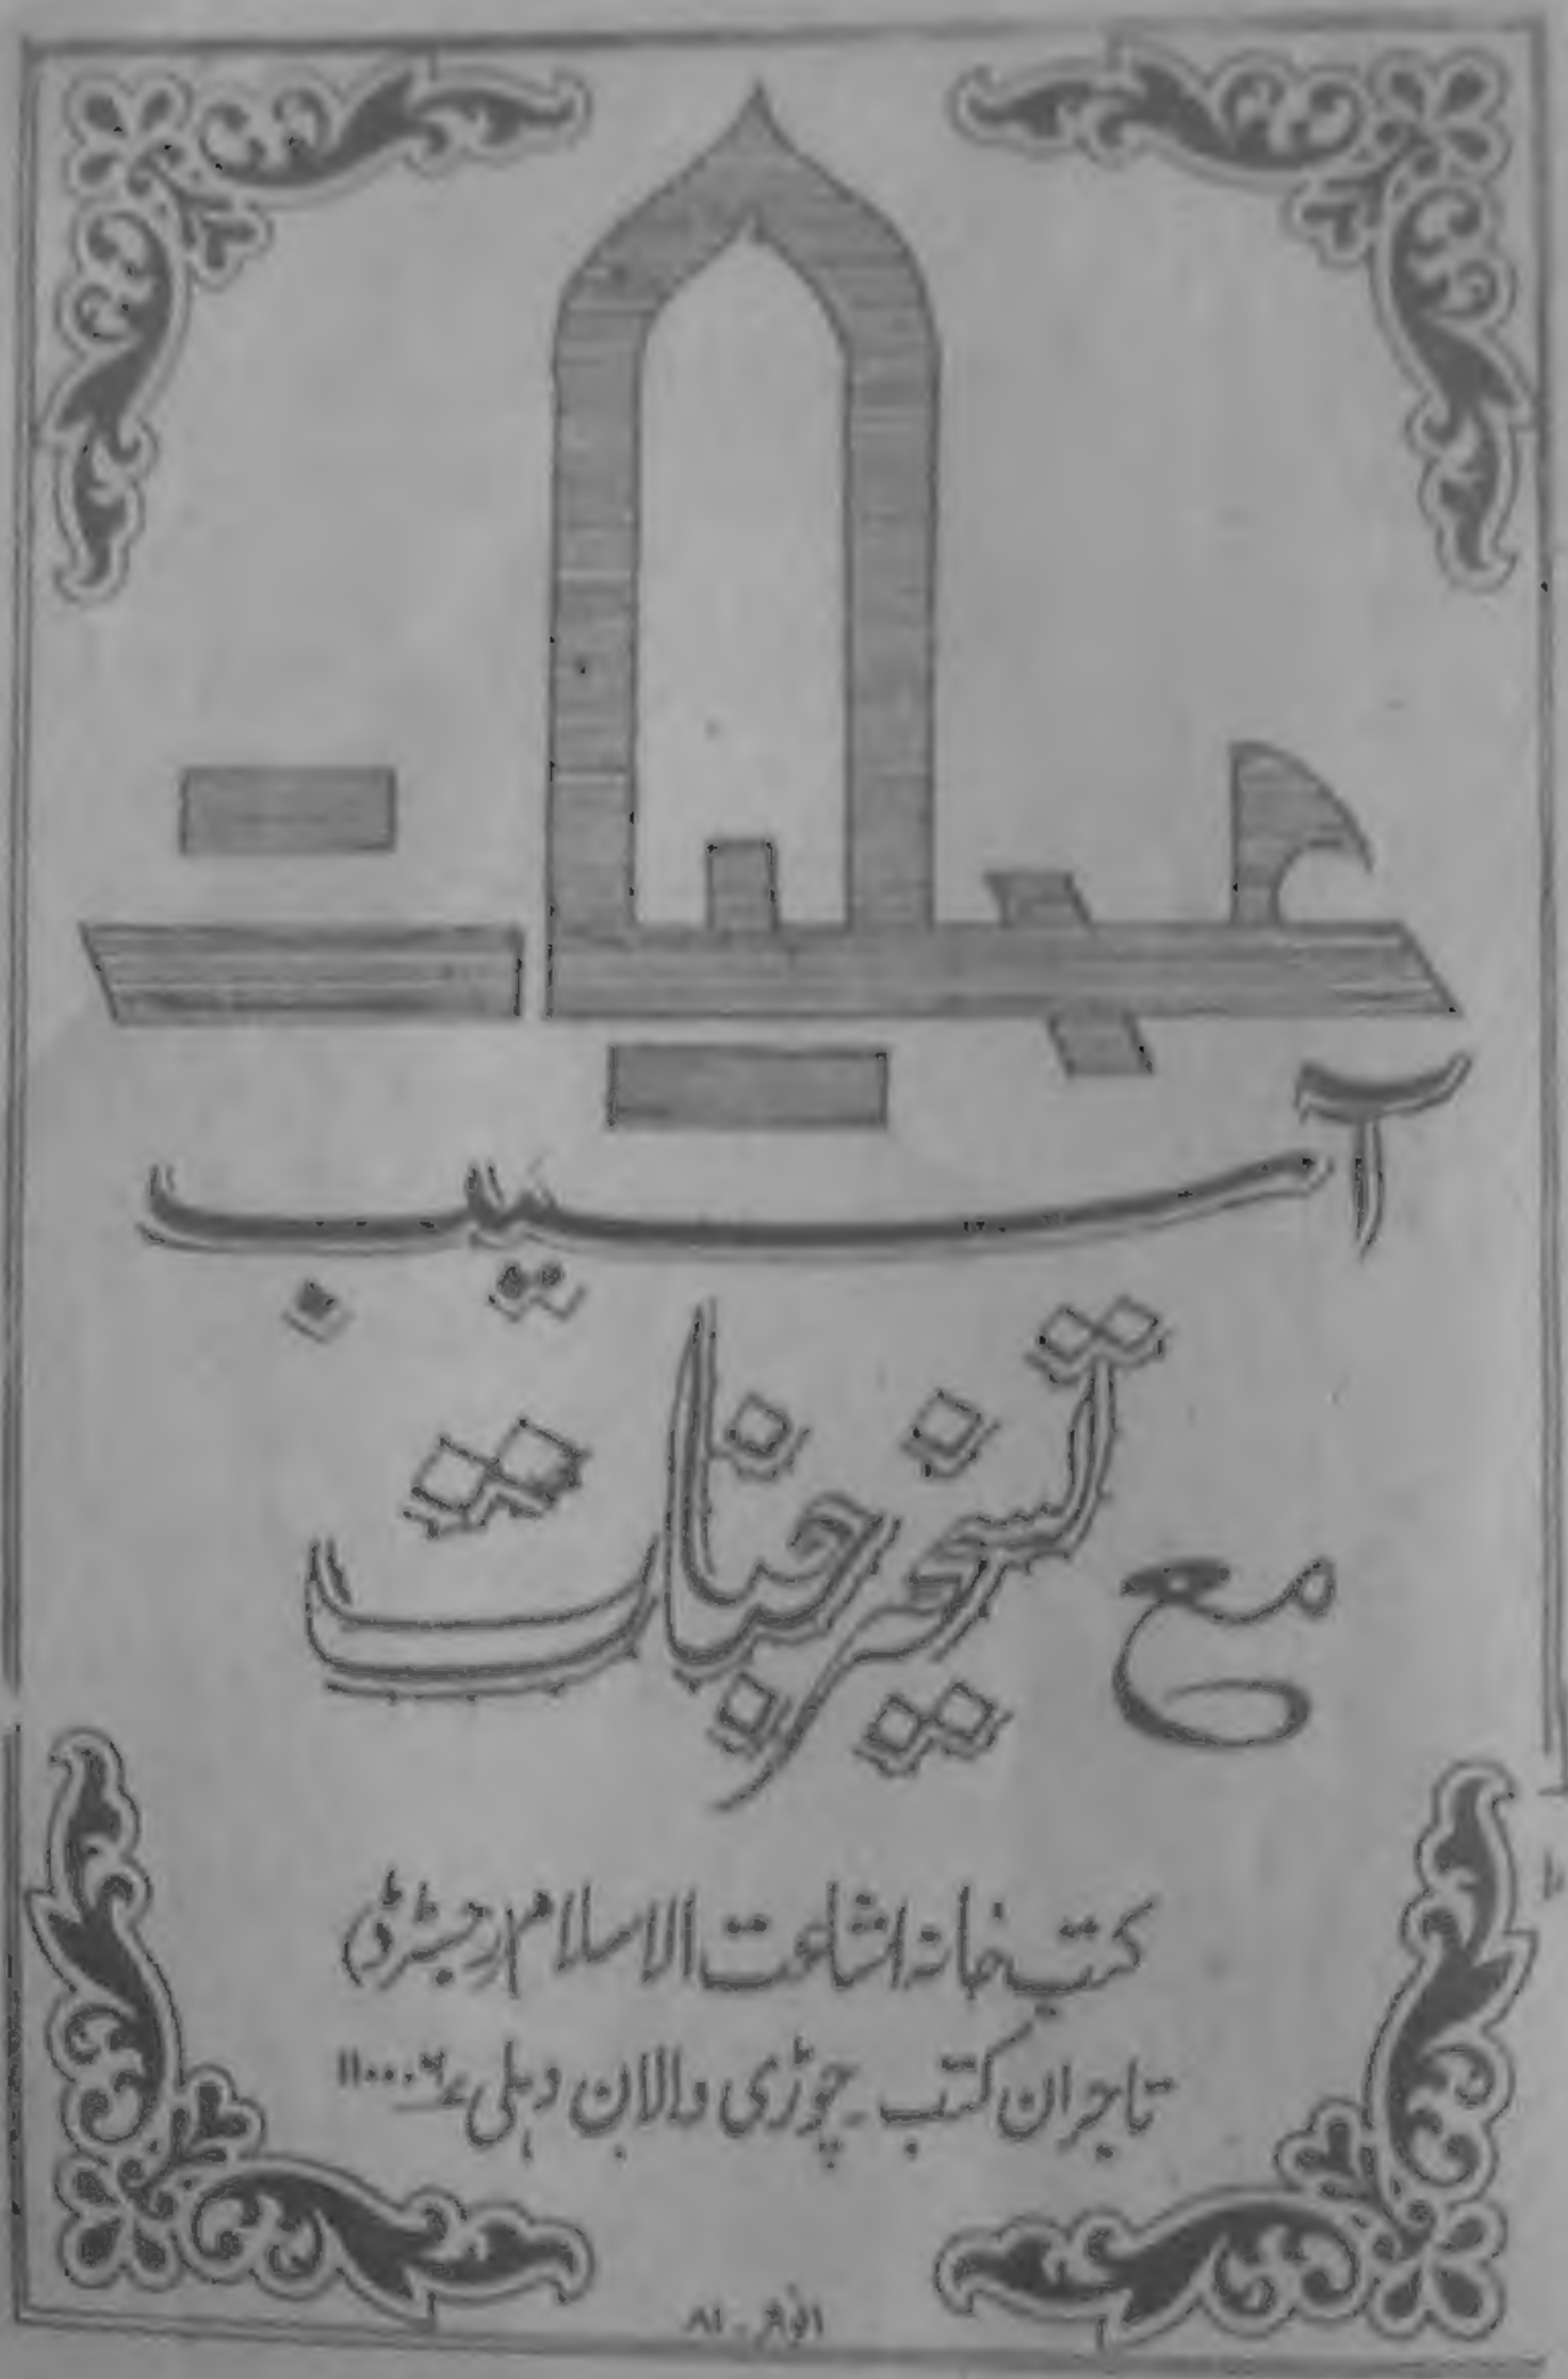 عملیات
آسیب
مع تسخیر جنات
کتب خانہ اشاعت الاسلام (رجسٹرڈ)
تاجران کتب ۔ چوڑی والان دہلی ۱۱۰۰۰۶